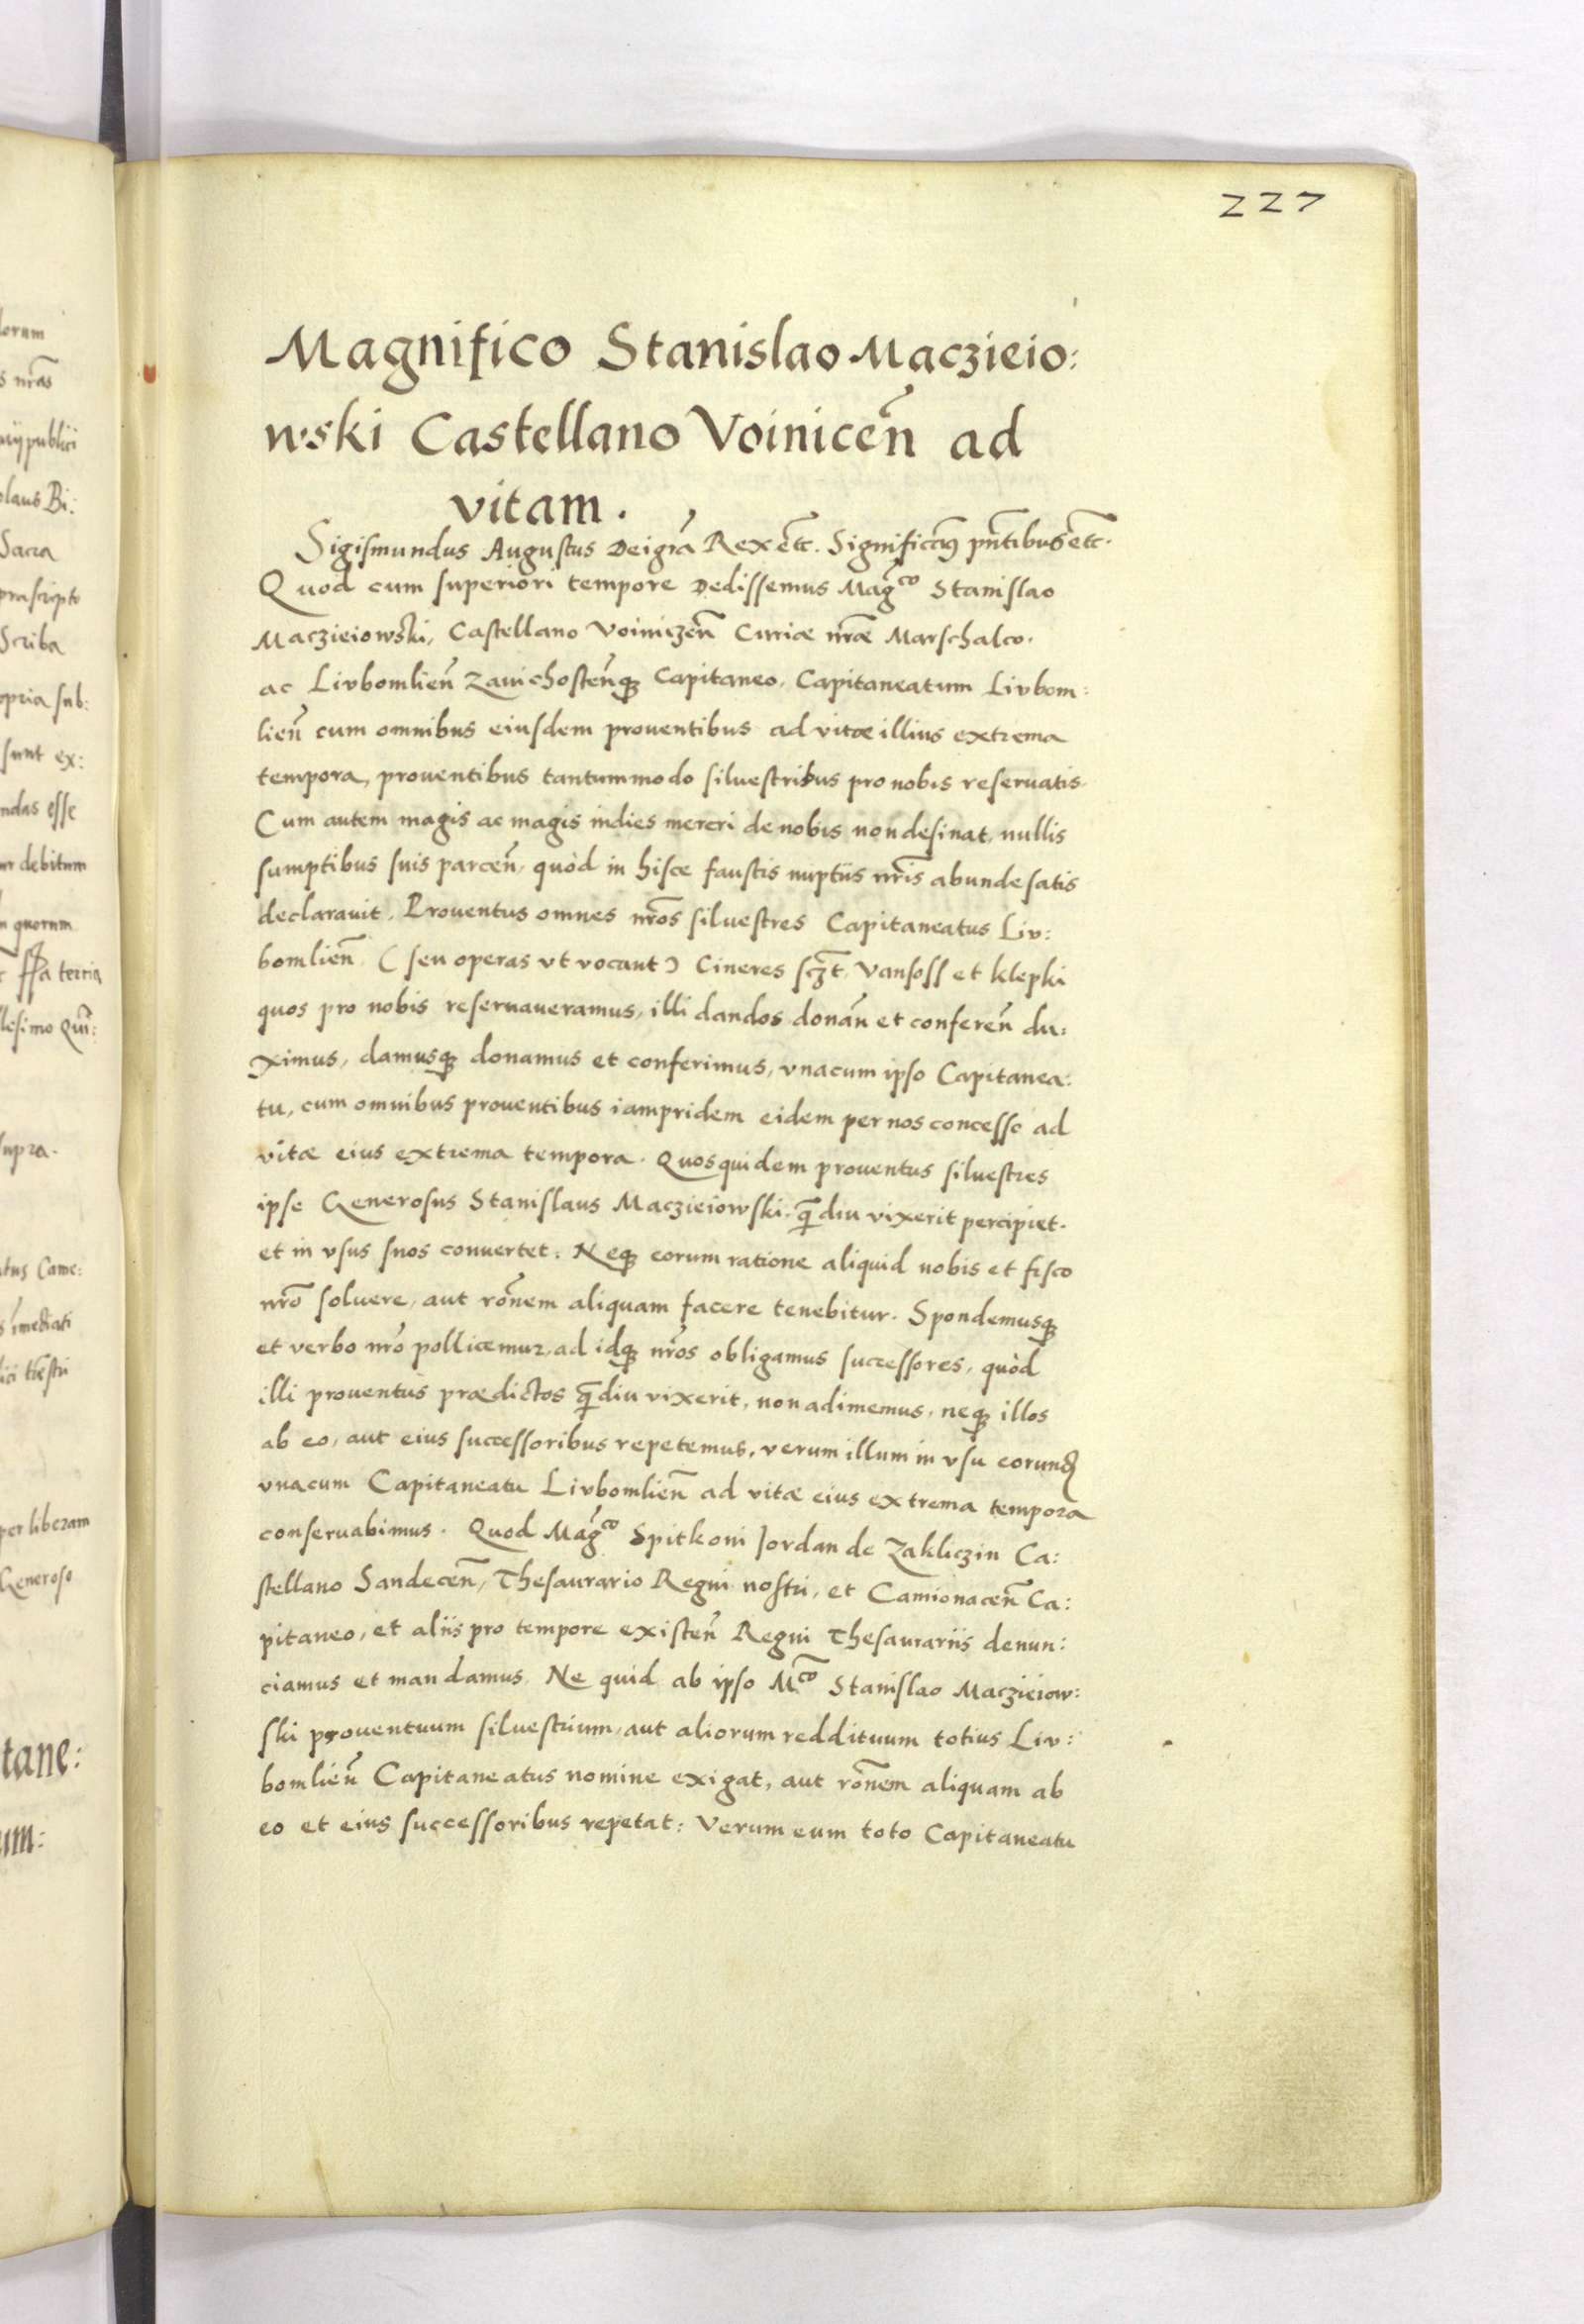 227
Magnifico Stanislao Maczieio:
wski Castellano Voinicen̄ ad
vitam.
Sigismundus Augustus Dei gra͂ Rex etc̄. Significam⁹ pn̄tibus etc̄.
Quod cum superiori tempore dedissemus Mag̃co Stanislao
Maczieiowski, Castellano Voiniczen̄ Curiæ nr̄æ Marschalco.
ac Livbomlien̄ Zavichosten̄q₃ Capitaneo, Capitaneatum Livbom:
lien̄ cum omnibus eiusdem proventibus ad vitæ illius extrema
tempora, proventibus tantummodo silvestribus pro nobis reservatis.
Cum autem magis ac magis indies mereri de nobis non desinat, nullis
sumptibus suis parcen̄, quòd in hisce faustis nuptiis nr̄is abunde satis
declaravit, Proventus omnes nr̄os silvestres Capitaneatus Liv:
bomlien̄ (seu operas vt vocant) Cineres scz̄t, Vansoss et klepki
quos pro nobis reservaveramus, illi dandos donan̄ et conferen̄ du:
ximus, damusq₃ donamus et conferimus, vnacum ipso Capitanea:
tu, cum omnibus proventibus iampridem eidem per nos concesso ad
vitæ eius extrema tempora. Quos quidem proventus silvestres
ipse Generosus Stanislaus Maczieiowski, q̄diu vixerit percipiet.
et in vsus suos convertet: Neq₃ eorum ratione aliquid nobis et fisco
nr̄o solvere, aut rōnem aliquam facere tenebitur. Spondemusq₃
et verbo nr̄o pollicemur, ad idq₃ nr̄os obligamus successores, quòd
illi proventus prædictos q̄diu vixerit, non adimemus, neq₃ illos
ab eo, aut eius successoribus repetemus, verum illum in vsu eorund
vnacum Capitaneatu Livbomlien̄ ad vitæ eius extrema tempora
conservabimus. Quod Mag̃co Spitkoni Jordan de Zakliczin Ca:
stellano Sandecen̄, Thesaurario Regni nostri, et Camionacen̄ Ca:
pitaneo, et aliis pro tempore existen̄ Regni Thesaurariis denun:
ciamus et mandamus Ne quid ab ipso Mc̄o Stanislao Maczieiow:
ski proventuum silvestrium, aut aliorum reddituum totius Liv:
bomlien̄ Capitaneatus nomine exigat, aut rōnem aliquam ab
eo et eius successoribus repetat: Verum eum toto Capitaneatu